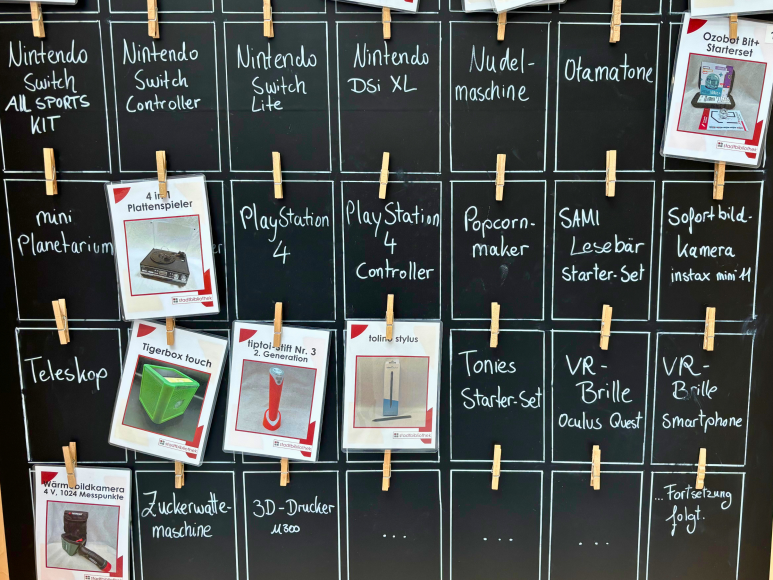 Nintendo
Switch
ALL SPORTS
KIT
Nintendo
Switch
Controller
Nintendo
Switch
Lite
Nintendo
DSi XL
Nudel-
maschine
Otamatone
Ozobot Bit+
Starterset
stadtbibliothek
mini
Planetarium
4 in 1
Plattenspieler
stadtbibliothek
PlayStation
4
PlayStation
4
Controller
Popcorn-
maker
SAMI
Lesebär
Starter-Set
Sofortbild-
kamera
instax mini 11
Teleskop
Tigerbox touch
stadtbibliothek
tiptoi-Stift Nr. 3
2. Generation
stadtbibliothek
tolino stylus
stadtbibliothek
Tonies
Starter-Set
VR-
Brille
Oculus Quest
VR-
Brille
Smartphone
Wärmebildkamera
4 V, 1024 Messpunkte
stadtbibliothek
Zuckerwatte-
maschine
3D-Drucker
...
...
...
...Fortsetzung
folgt.